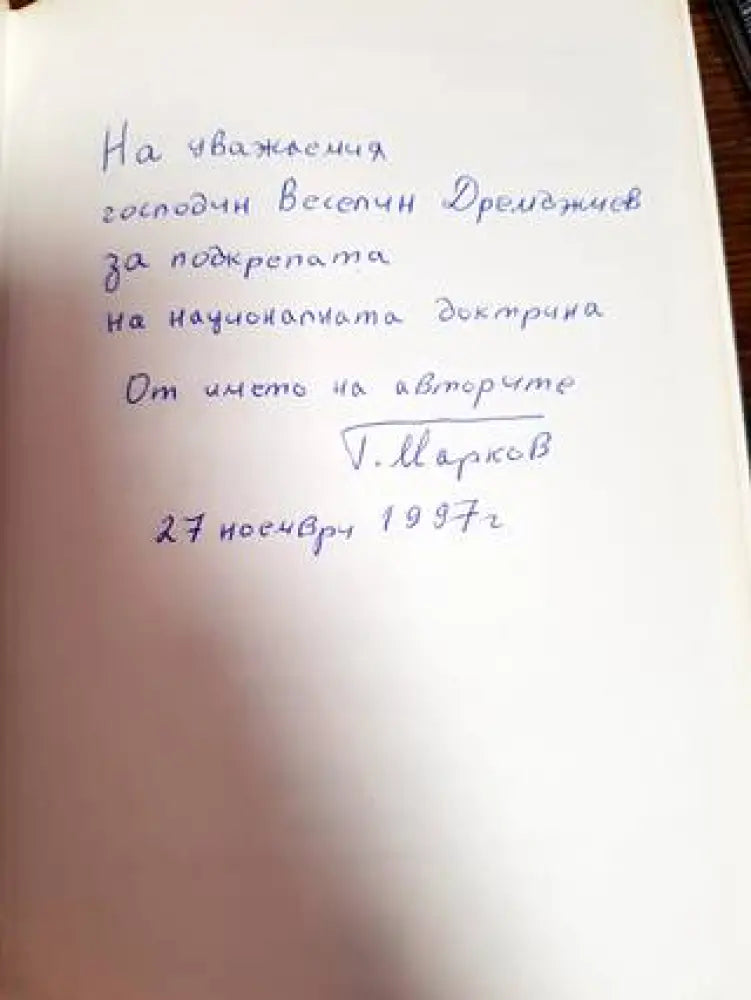 На уважаемия
господин Веселин Дремджиев
за подкрепата
на националната доктрина
От името на авторите
Г. Марков
27 ноември 1997 г